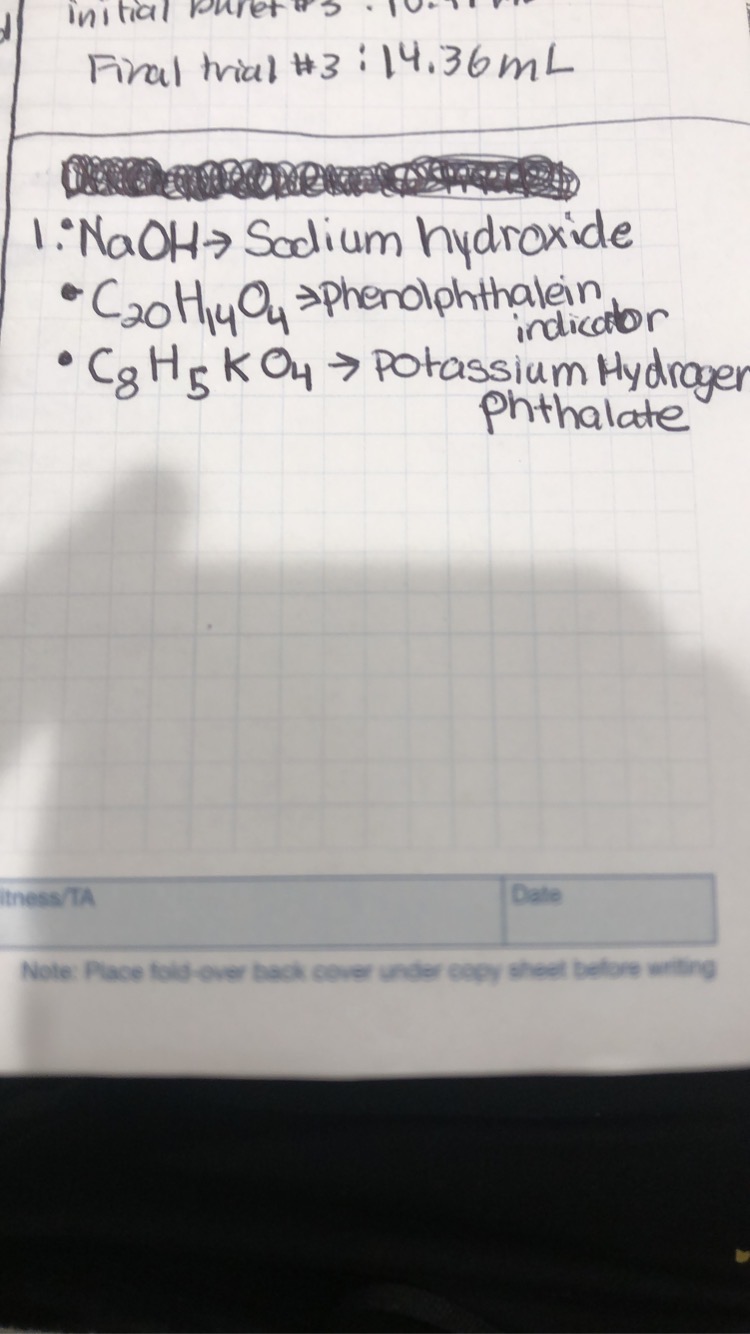 initial buret #3 :
Final trial #3 : 14.36mL
1. • NaOH → Sodium hydroxide
• C20H14O4 → Phenolphthalein
indicator
• C8H5KO4 → Potassium Hydrogen
Phthalate
itness/TA
Date
Note: Place fold-over back cover under copy sheet before writing